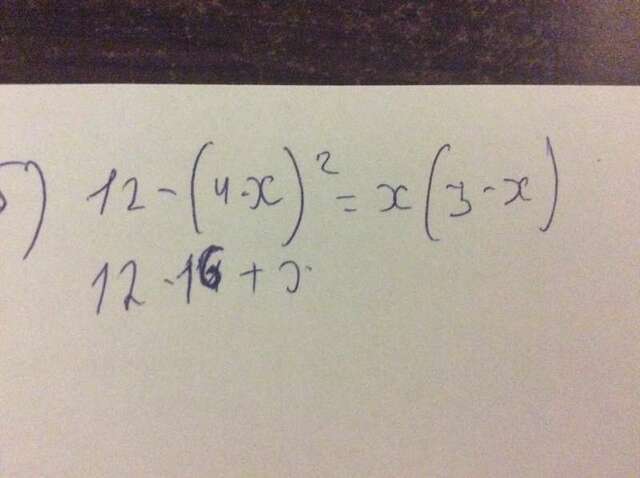 б) 12 - (4-x)² = x(3-x)
12 - 16 +